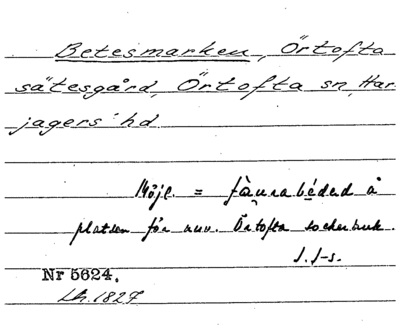 Betesmarken, Örtofta
sätesgård, Örtofta sn, Har-
jagers hd
Möjl. = fàurabéded å
platsen för nuv. Örtofta sockerbruk.
J. J-s.
Nr 5624.
Lh. 1827